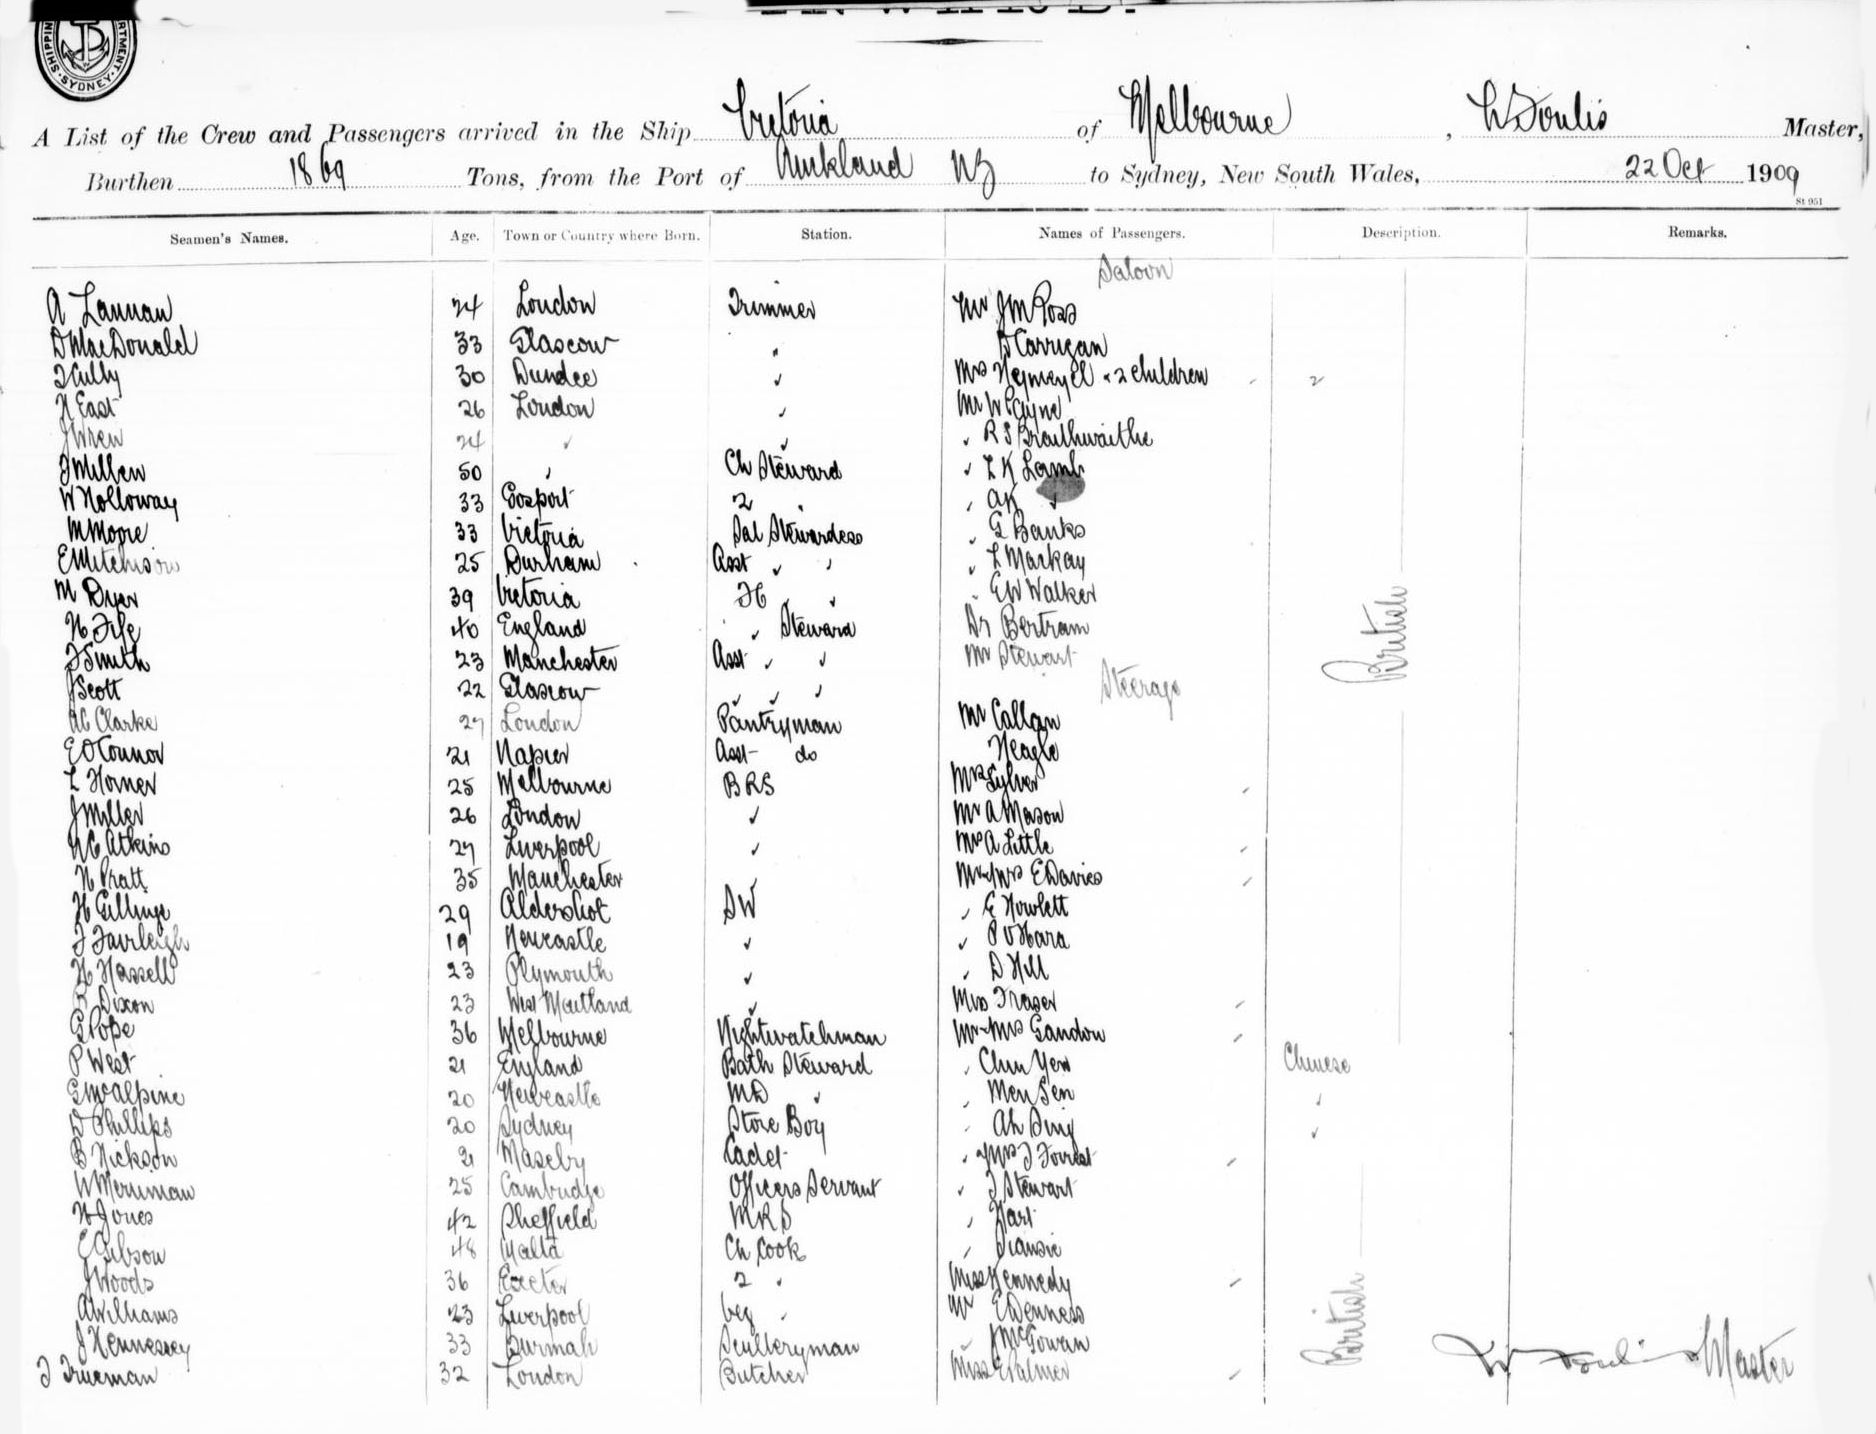 SHIPPING DEPARTMENT · SYDNEY ·
A List of the Crew and Passengers arrived in the Ship Victoria of Melbourne, W Foulis Master,
Burthen 1869 Tons, from the Port of Auckland NZ to Sydney, New South Wales, 22 Oct 1909
St 951
Seamen's Names. Age. Town or Country where Born. Station. Names of Passengers. Description. Remarks.
Saloon
A Lannan 24 London Trimmer Mr J M Ross
D MacDonald 33 Glascow " D Carrigan
J Cully 30 Dundee " Mrs & 2 children 2
H East 26 London " Mr W Payne
J Wren 24 " " " R S Braithwaithe
J Millen 50 " Ch Steward " L K Lamb
W Holloway 33 Gosport 2 " " AK "
M Moore 33 Victoria Sal Stewardess " G Banks
E Mitchison 25 Durham Asst " " " L Mackay
M Dyer 39 Victoria FC " " " E W Walker
H Fife 40 England " Steward Dr Bertram British
J Smith 23 Manchester Asst " " Mr Stewart
J Scott 22 Glascow " " " Steerage
A C Clarke 27 London Pantryman Mr Callan
E O'Connor 21 Napier Asst do Heagle
L Horner 25 Melbourne BRS Mrs Sylver
J Miller 26 London " Mr A Mason
W C Atkins 27 Liverpool " Mrs A Little
H Pratt 35 Manchester " Mr & Mrs E Davies
H Gillings 29 Aldershot SW " E Howlett
J Fairleigh 19 Newcastle " " P O'Hara
H Hassell 23 Plymouth " " D Hill
B Dixon 23 West Maitland " Miss Fraser
G Pope 36 Melbourne Nightwatchman Mr & Mrs Gandon
P West 21 England Bath Steward " Chun Yen Chinese
G McAlpine 20 Newcastle MD " " Men Sen "
D Phillips 20 Sydney Store Boy " Ah Sing "
B Hickson 21 Cadet " & Mrs J Forrest
W Merriman 25 Cambridge Officers Servant " J Stewart
H Jones 42 Sheffield MRS " Hart
E Gibson 48 Malta Ch Cook "
J Woods 36 Exeter 2 " Miss Kennedy
A Williams 23 Liverpool Veg " Mr E Denness British
J Hennessey 33 Burmah Sculleryman " J McGowan
J Trueman 32 London Butcher Miss E Palmer W Foulis Master